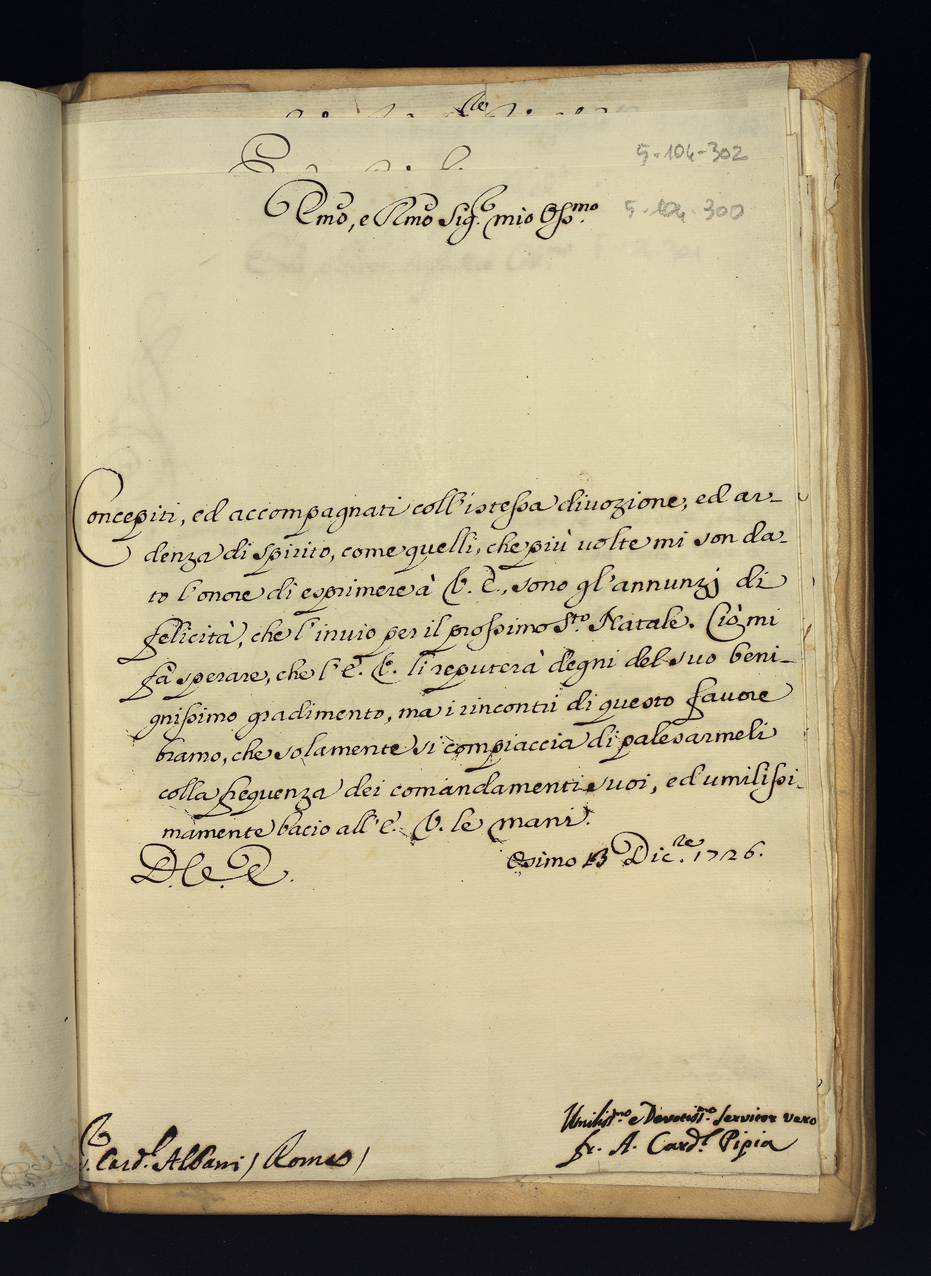 5-104-302
Emo, e Rmo Sig.r mio Ossmo
5-104-300
Concepiti, ed accompagnati coll'istessa divozione, ed ar-
denza di spirito, come quelli, che più volte mi son da-
to l'onore di esprimere à V. E., sono gl'annunzj di
felicità, che l'invio per il prossimo Sto Natale. Ciò mi
fà sperare, che l'E. V. li reputerà degni del suo beni-
gnissimo gradimento, ma i rincontri di questo favore
bramo, che solamente si compiaccia di palesarmeli
colla frequenza dei comandamenti suoi, ed umilissi-
mamente bacio all'E. V. le mani.
Osimo 13 Dic.re 1726.
D. V. E.
Umilissmo e Devotissmo Servitor vero
fr. A. Card.l Pipia
Card.l Albani / Roma /